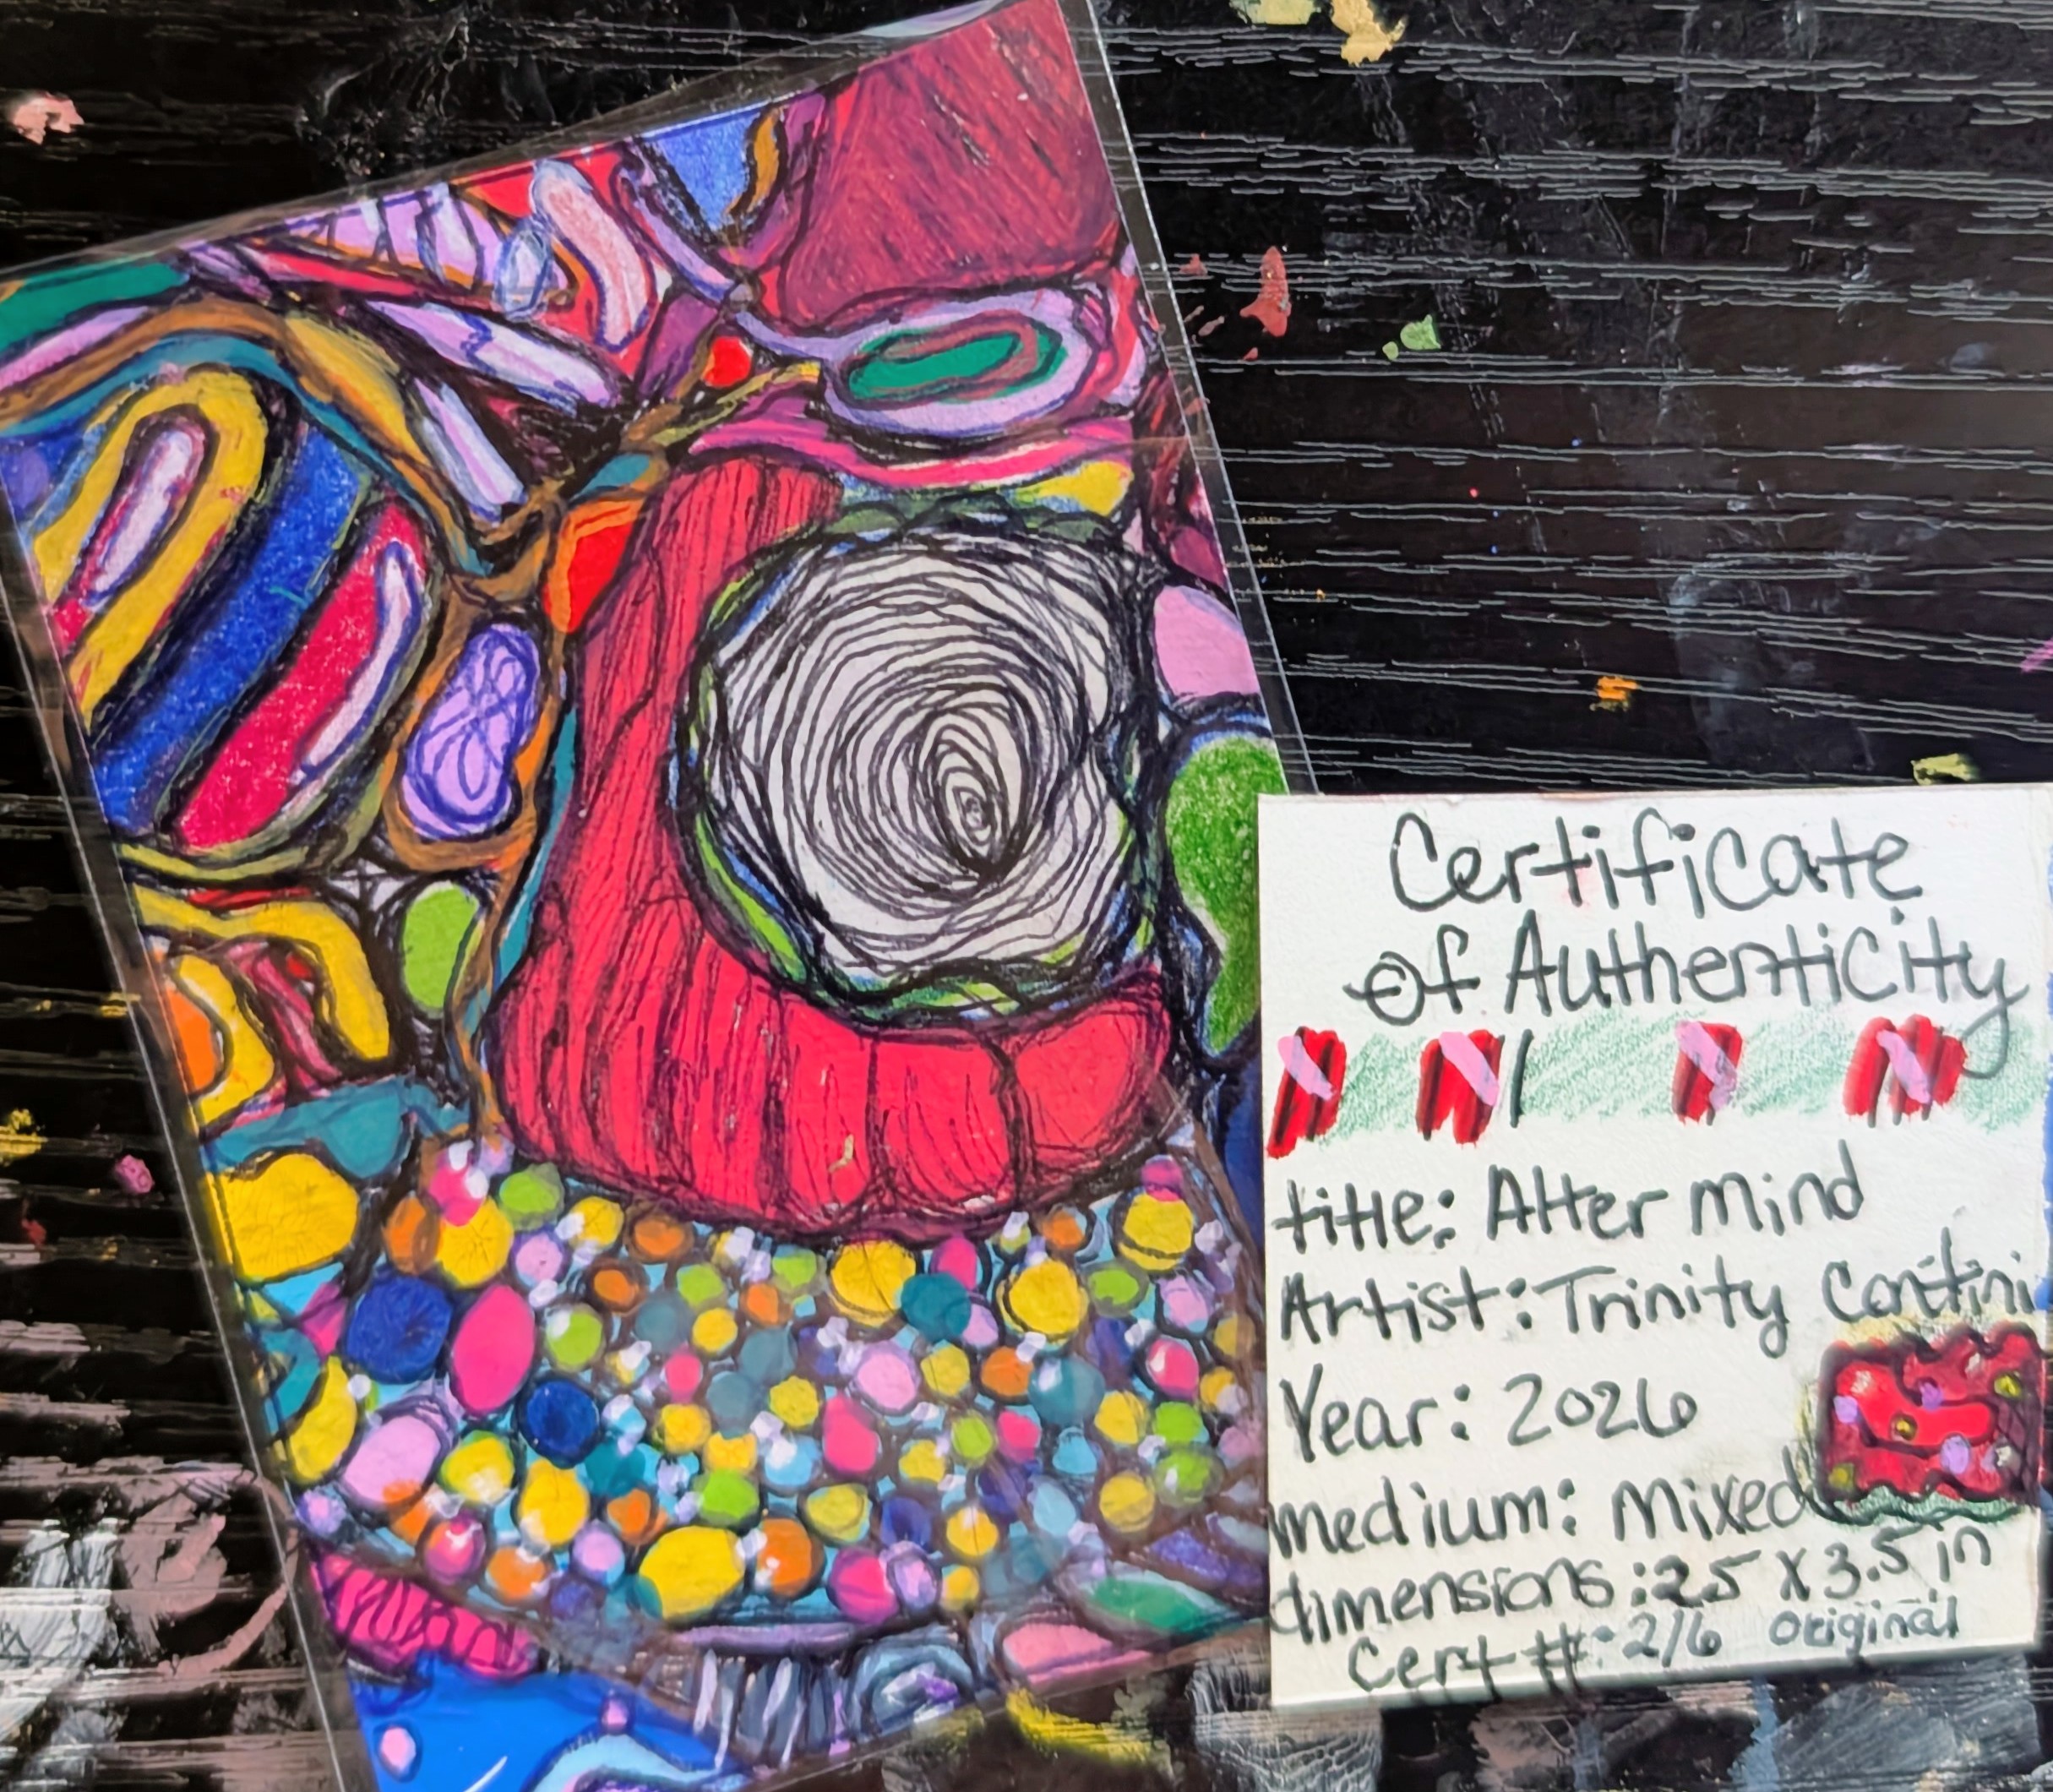 Certificate
of Authenticity
title: Alter Mind
Artist: Trinity Contini
Year: 2026
Medium: Mixed
dimensions: 2.5 x 3.5 in
Cert #: 2/6 Original